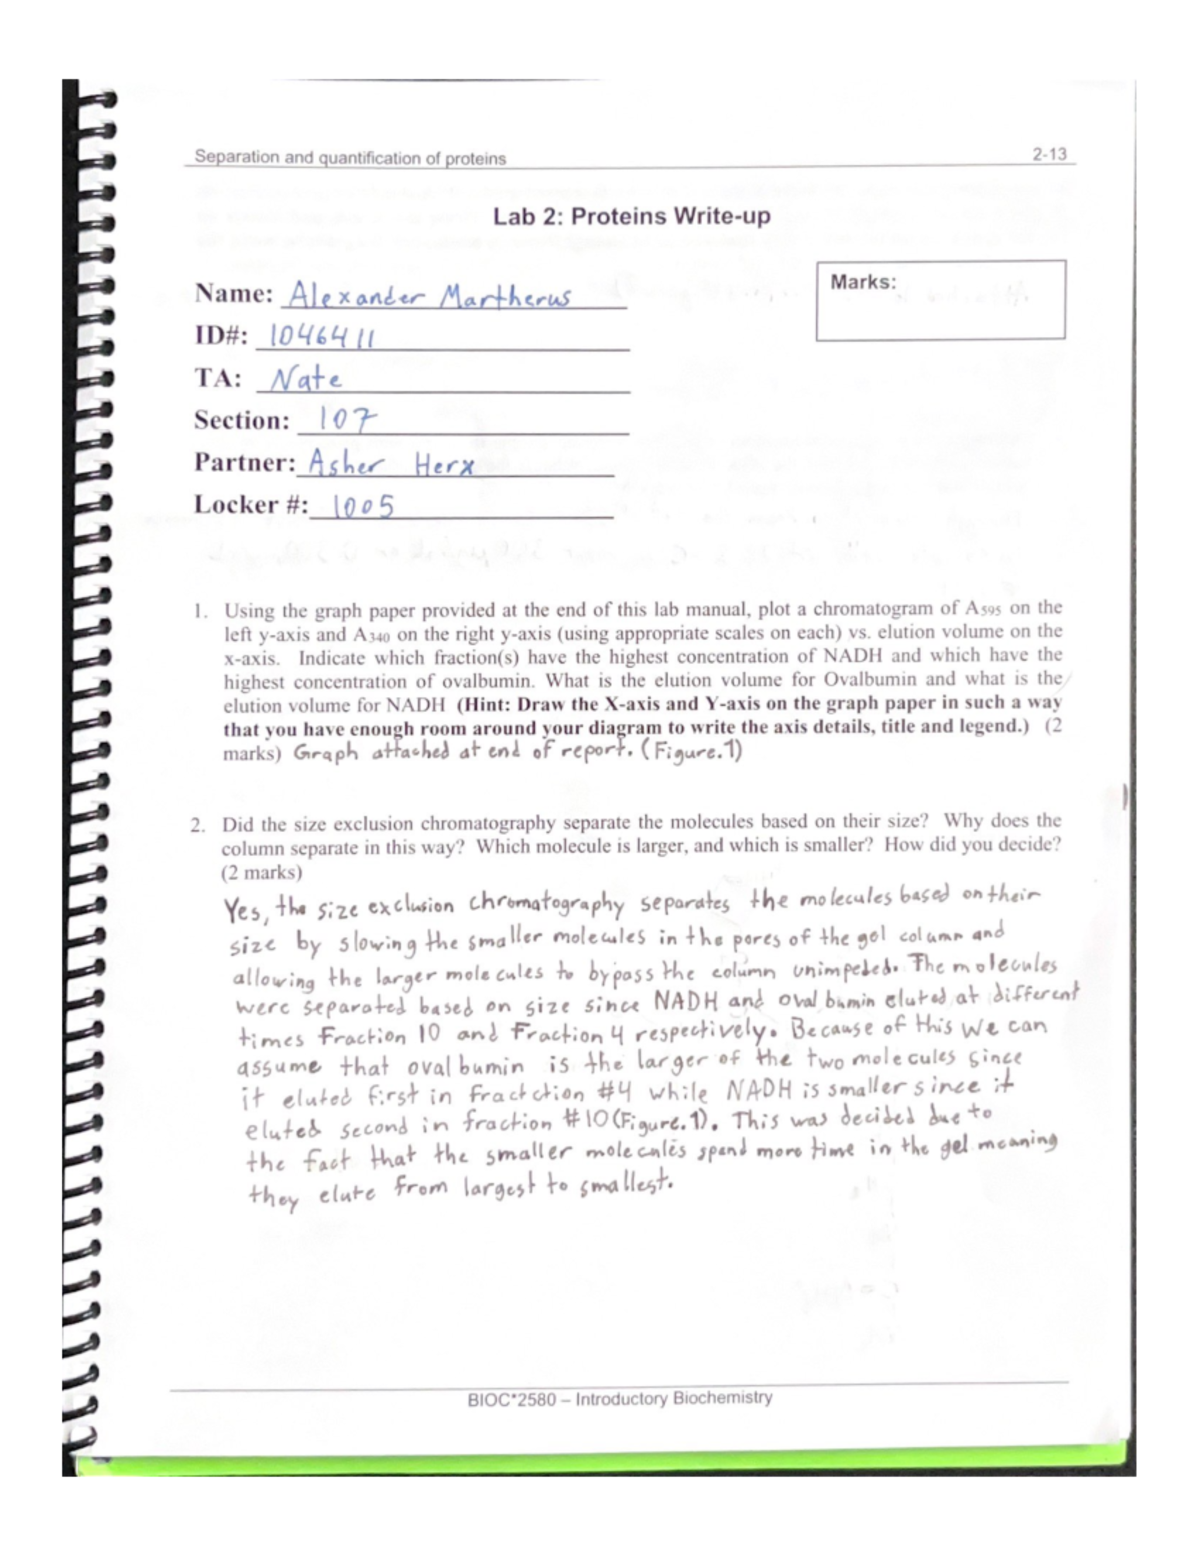 Separation and quantification of proteins 2-13
Lab 2: Proteins Write-up
Marks:
Name: Alexander Martherus
ID#: 1046411
TA: Nate
Section: 107
Partner: Asher Herx
Locker #: 1005
1. Using the graph paper provided at the end of this lab manual, plot a chromatogram of A595 on the
left y-axis and A340 on the right y-axis (using appropriate scales on each) vs. elution volume on the
x-axis. Indicate which fraction(s) have the highest concentration of NADH and which have the
highest concentration of ovalbumin. What is the elution volume for Ovalbumin and what is the
elution volume for NADH (Hint: Draw the X-axis and Y-axis on the graph paper in such a way
that you have enough room around your diagram to write the axis details, title and legend.) (2
marks) Graph attached at end of report. (Figure.1)
2. Did the size exclusion chromatography separate the molecules based on their size? Why does the
column separate in this way? Which molecule is larger, and which is smaller? How did you decide?
(2 marks)
Yes, the size exclusion chromatography separates the molecules based on their
size by slowing the smaller molecules in the pores of the gel column and
allowing the larger molecules to bypass the column unimpeded. The molecules
were separated based on size since NADH and ovalbumin eluted at different
times Fraction 10 and Fraction 4 respectively. Because of this we can
assume that ovalbumin is the larger of the two molecules since
it eluted first in fractction #4 while NADH is smaller since it
eluted second in fraction #10 (Figure.1). This was decided due to
the fact that the smaller molecules spend more time in the gel meaning
they elute from largest to smallest.
BIOC*2580 – Introductory Biochemistry